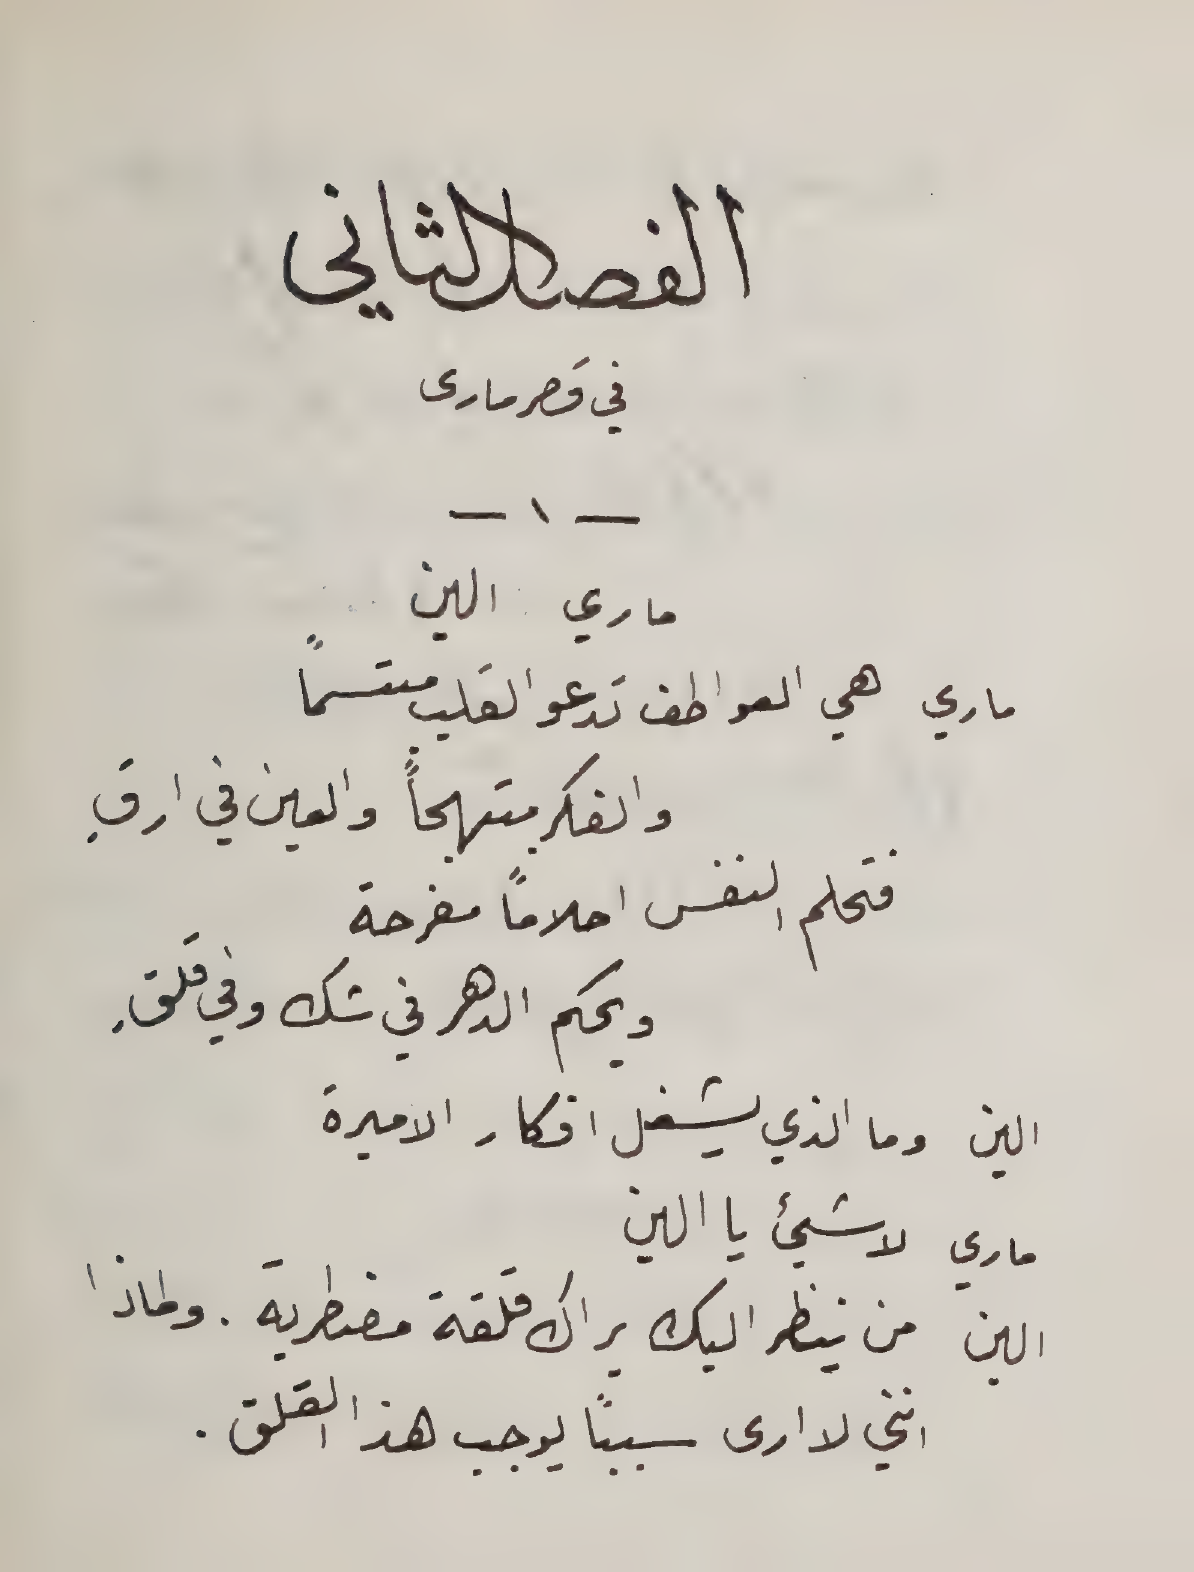 الفصل الثاني
في قصر ماري
— ١ —
ماري الين
ماري هي العواطف تدعو القلب مبتسماً
والفكر مبتهجاً والعين في ارقِ
فتحلم النفس احلاماً مفرحة
ويحكم الدهر في شك وفي قلقِ
الين وما الذي يشغل افكار الاميرة
ماري لا شيئ يا الين
الين من ينظر اليك يراك قلقة مضطربة . ولماذا
انني لا ارى سبباً يوجب هذا القلق .